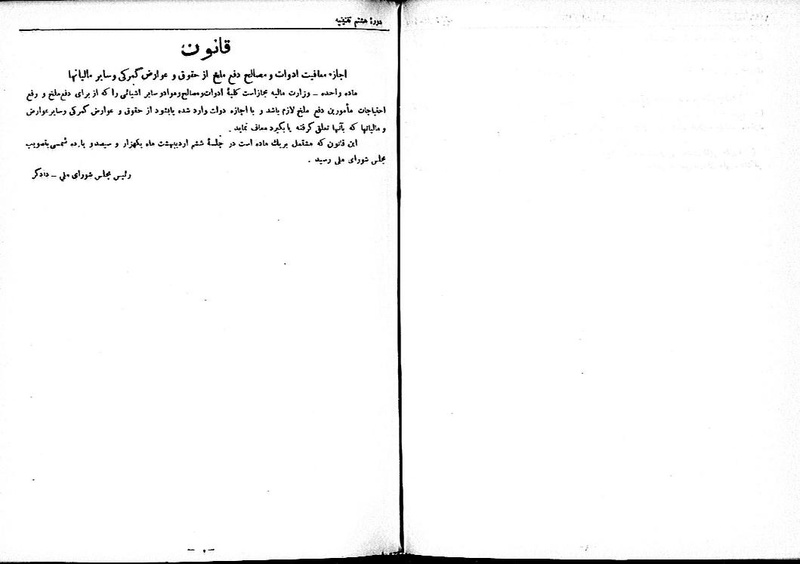 دورۀ هشتم تقنینیه
قانون
اجازه معافیت ادوات و مصالح دفع ملخ از حقوق و عوارض گمرکی وسایر مالیاتها
ماده واحده ـ وزارت مالیه مجازاست کلیۀ ادوات ومصالح ومواد وسایر اشیائی را که از برای دفع ملخ و رفع
احتیاجات مأمورین دفع ملخ لازم باشد و با اجازه دولت وارد شده یا بشود از حقوق و عوارض گمرکی وسایر عوارض
و مالیاتها که بآنها تعلق گرفته یا بگیرد معاف نماید .
این قانون که مشتمل بریك ماده است در جلسۀ ششم اردیبهشت ماه یکهزار و سیصد و یازده شمسی بتصویب
مجلس شورای ملی رسید .
رئیس مجلس شورای ملی ـ دادگر